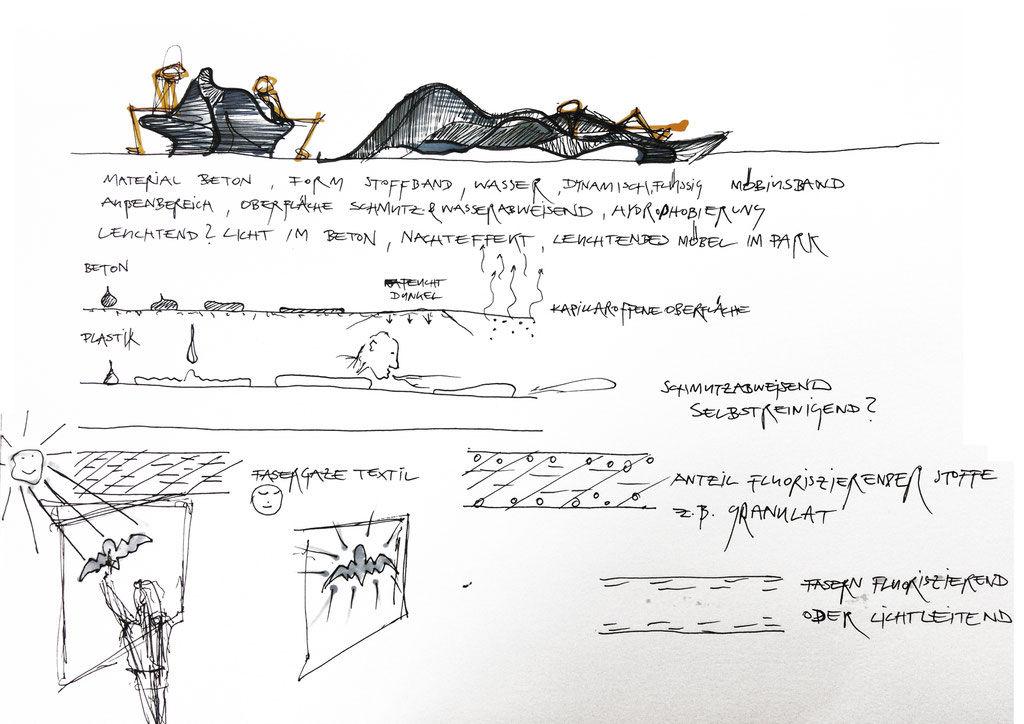 MATERIAL BETON, FORM STOFFBAND, WASSER, DYNAMISCH, FLÜSSIG MÖBIUSBAND
AUßENBEREICH, OBERFLÄCHE SCHMUTZ & WASSERABWEISEND, HYDROPHOBIERUNG
LEUCHTEND? LICHT IM BETON, NACHTEFFEKT, LEUCHTENDES MÖBEL IM PARK
BETON
FEUCHT
DUNKEL
KAPILLAROFFENE OBERFLÄCHE
PLASTIK
SCHMUTZABWEISEND
SELBSTREINIGEND?
FASERGAZE TEXTIL
ANTEIL FLUORISZIERENDER STOFFE
Z.B. GRANULAT
FASERN FLUORISZIEREND
ODER LICHTLEITEND